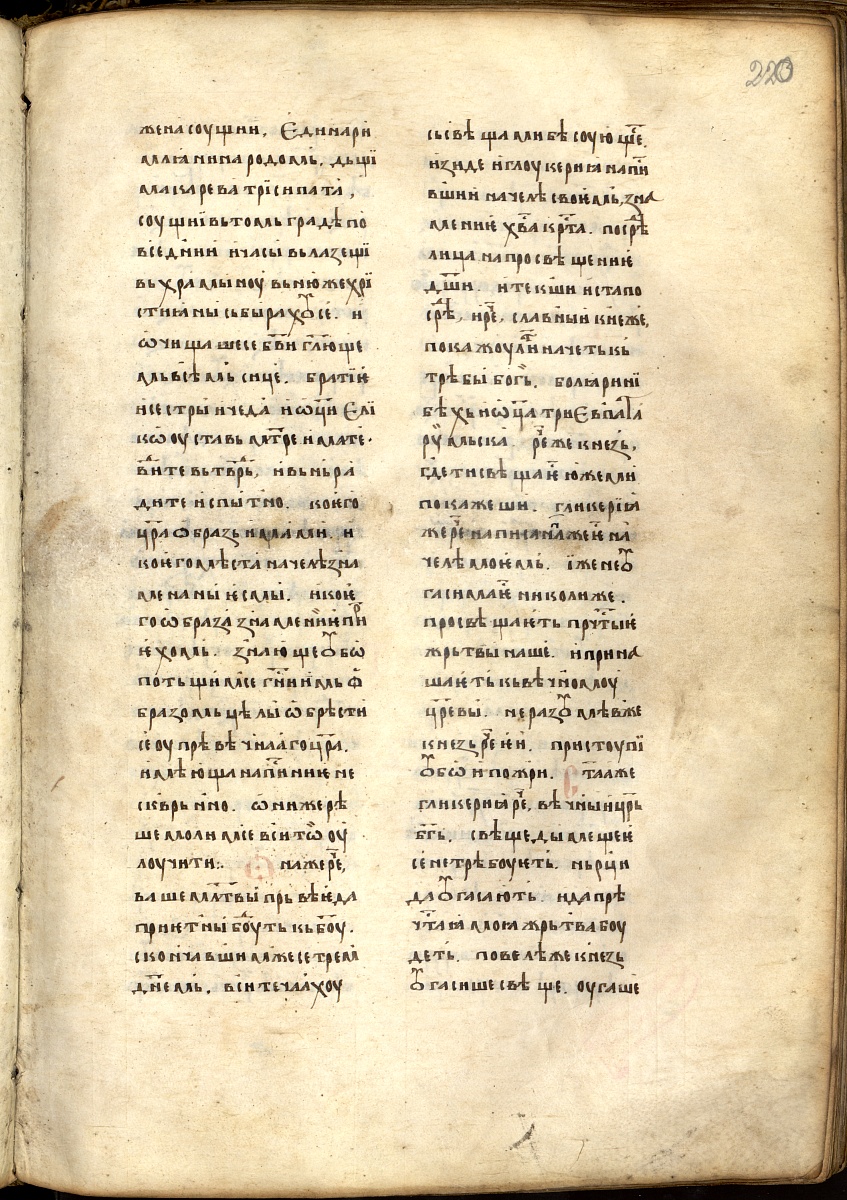 220
жена соущи, Єдинари
мліанина родомь, дьщї
макарева трїсипата,
соущиї вьтомь градѣ по
вседн҃ни и҆часы вьлазещї
вьхрамы ноу вьнюже хрї
стиꙗны сьбырахꙋ се. и҆
ѡ҆чищаше се бж҃ви гл҃юще
мь всѣмь сице. братїѥ
и҆сестры и҆чеда и҆ѡ҆ци Єлї
кѡ оуставь мт҃ре и҆мате
вьниде вьтврь, и҆вьньра
дите и҆спытно. коѥго
цр҃а ѡ҆бразь и҆мами. и҆
коѥго мѣста начелѣ зна
менаны ѥсмы. и҆коѥ
го ѡ҆браза знаменїе при
ѥ҆хомь. знающе ꙋбѡ
потьщим се гн҃ниимь ѡ҆
бразомь цѣлы ѡ҆брѣсти
се оу прѣвѣчнаго цр҃а.
и҆мѣюща написание не
сквр҃ьнно. ѡ҆ниже рѣ
ше молим се вси тѡ҆ оу
лоучити: Ѡна же реч҃е,
ваше мл҃твы прьвѣѥда
приѥтны боудуть кь бо҃у.
скон҃чавши мже се трем
днемь. вси течаахоу
сьсвѣщами бѣ соу юще.
и҆зиде и҆глоукериꙗ напи
вши начелѣ своѥмь, зна
мениѥ хв҃а крт҃а. посрѣ
лица на просвѣщениѥ
дш҃и. и҆текши и҆ста по
срѣ, и҆реч҃е, славный кнеже,
покажоу ли начеть кь
трѣбы богь. боларинї
бѣхь и҆ѡ҆ца три Євпата
румьска. реч҃е же кнезь,
где ти свѣща ѥ юже ми
покажеши. гликериꙗ
же реч҃е написана же ѥ на
челѣ моѥмь. їже не ꙋ
гасима ѥ николиже.
просвѣщаѥть прчтыѥ
жрьтвы наше. и҆прина
шаѥть кь вѣчномоу
цр҃еви. не разꙋмѣв же
кнезь реч҃е ѥи. пристоупї
ꙋбѡ и҆ пожри. Стаа же
гликериꙗ реч҃е, вѣчный цр҃ь
бг҃ь, свѣще дымещеѥ
се не трѣбоуѥть. нь рци
да ꙋгасають. и҆да прѣ
чт҃аꙗ моꙗ жрьтва боу
деть. повелѣ же кнезь
ꙋгасише свѣще. оугаше